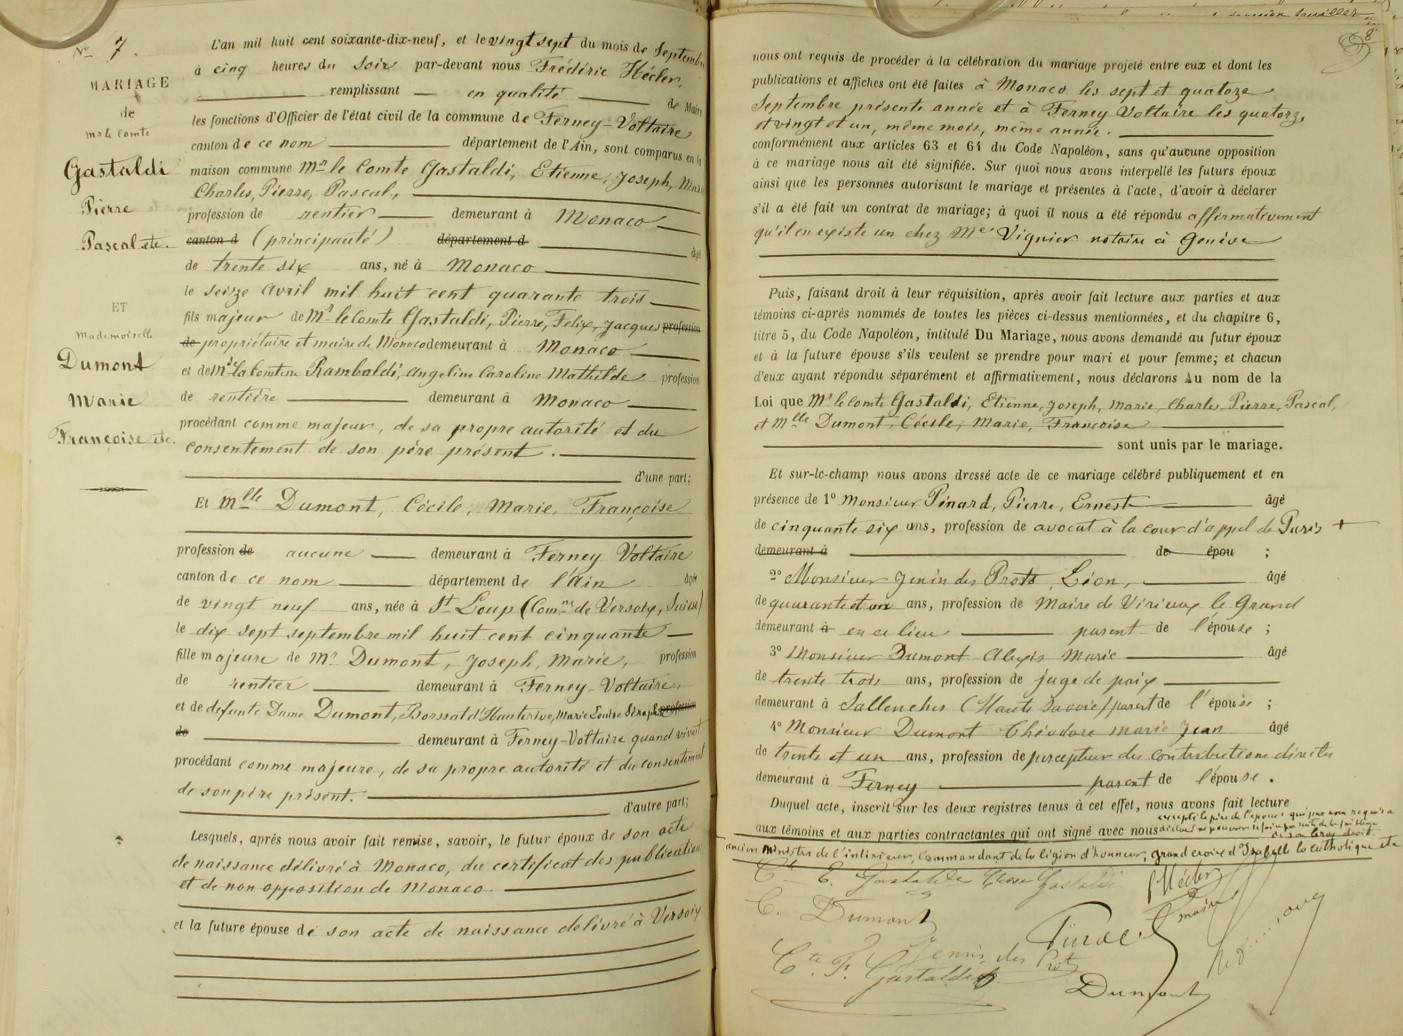 No 7.
MARIAGE
de
Mr le Comte
Gastaldi
Pierre
Pascal etc.
ET
Mademoiselle
Dumont
Marie
Françoise etc.
L'an mil huit cent soixante-dix-neuf, et le vingt sept du mois de Septembre
à cinq heures du Soir par-devant nous Frédéric Hécler,
remplissant en qualité de Maire
les fonctions d'Officier de l'état civil de la commune de Ferney-Voltaire
canton de ce nom département de l'Ain, sont comparus en la
maison commune Mr le Comte Gastaldi, Etienne, Joseph, Marie
Charles, Pierre, Pascal,
profession de rentier demeurant à Monaco
canton d (principauté) département d âgé
de trente six ans, né à Monaco
le seize Avril mil huit cent quarante trois
fils majeur de Mr le Comte Gastaldi, Pierre, Felix, Jacques profession
de propriétaire et maire de Monaco demeurant à Monaco
et de Mme la Comtesse Rambaldi, Angeline Caroline Mathilde profession
de rentière demeurant à Monaco
procédant comme majeur, de sa propre autorité et du
consentement de son père présent.
d'une part;
Et Mlle Dumont, Cécile, Marie, Françoise
profession de aucune demeurant à Ferney Voltaire
canton de ce nom département de l'Ain âgée
de vingt neuf ans, née à St Loup (Comne de Versoix, Suisse)
le dix sept septembre mil huit cent cinquante
fille majeure de Mr Dumont, Joseph, Marie, profession
de rentier demeurant à Ferney-Voltaire,
et de defunte Dame Dumont, Borssat d'Hauterive, Marie Louise Séraph. profession
de demeurant à Ferney-Voltaire quand vivait
procédant comme majeure, de sa propre autorité et du consentement
de son père présent.
d'autre part;
Lesquels, après nous avoir fait remise, savoir, le futur époux de son acte
de naissance délivré à Monaco, du certificat des publications
et de non opposition de Monaco.
et la future épouse de son acte de naissance délivré à Versoix
8
nous ont requis de procéder à la célébration du mariage projeté entre eux et dont les
publications et affiches ont été faites à Monaco les sept et quatorze
Septembre présente année et à Ferney Voltaire les quatorze
et vingt et un, même mois, même année.
conformément aux articles 63 et 64 du Code Napoléon, sans qu'aucune opposition
à ce mariage nous ait été signifiée. Sur quoi nous avons interpellé les futurs époux
ainsi que les personnes autorisant le mariage et présentes à l'acte, d'avoir à déclarer
s'il a été fait un contrat de mariage; à quoi il nous a été répondu affirmativement
qu'il en existe un chez Me Vignier notaire à Genève
Puis, faisant droit à leur réquisition, après avoir fait lecture aux parties et aux
témoins ci-après nommés de toutes les pièces ci-dessus mentionnées, et du chapitre 6,
titre 5, du Code Napoléon, intitulé Du Mariage, nous avons demandé au futur époux
et à la future épouse s'ils veulent se prendre pour mari et pour femme; et chacun
d'eux ayant répondu séparément et affirmativement, nous déclarons Au nom de la
Loi que Mr le Comte Gastaldi, Etienne, Joseph, Marie, Charles, Pierre, Pascal,
et Mlle Dumont, Cécile, Marie, Françoise
sont unis par le mariage.
Et sur-le-champ nous avons dressé acte de ce mariage célébré publiquement et en
présence de 1° Monsieur Pinard, Pierre, Ernest âgé
de cinquante six ans, profession de avocat à la cour d'appel de Paris +
demeurant à de épou ;
2° Monsieur Jenin des Prots, Léon, âgé
de quarante et un ans, profession de Maire de Virieux le Grand
demeurant à en ce lieu parent de l'épouse ;
3° Monsieur Dumont Alexis Marie âgé
de trente trois ans, profession de juge de paix
demeurant à Sallenches (Haute Savoie) parent de l'épouse ;
4° Monsieur Dumont Théodore Marie Jean âgé
de trente et un ans, profession de percepteur des contributions directes
demeurant à Ferney parent de l'épouse.
Duquel acte, inscrit sur les deux registres tenus à cet effet, nous avons fait lecture
aux témoins et aux parties contractantes qui ont signé avec nous excepté le père de l'épouse
ancien Ministre de l'intérieur, Commandant de la légion d'honneur, grand croix d'Isabelle la Catholique etc
Cte E. Gastaldi
Gastaldi
F. Hécler
maire
C. Dumont
Pinard
Jenin des Prots
Cte F. Gastaldi
Dumont